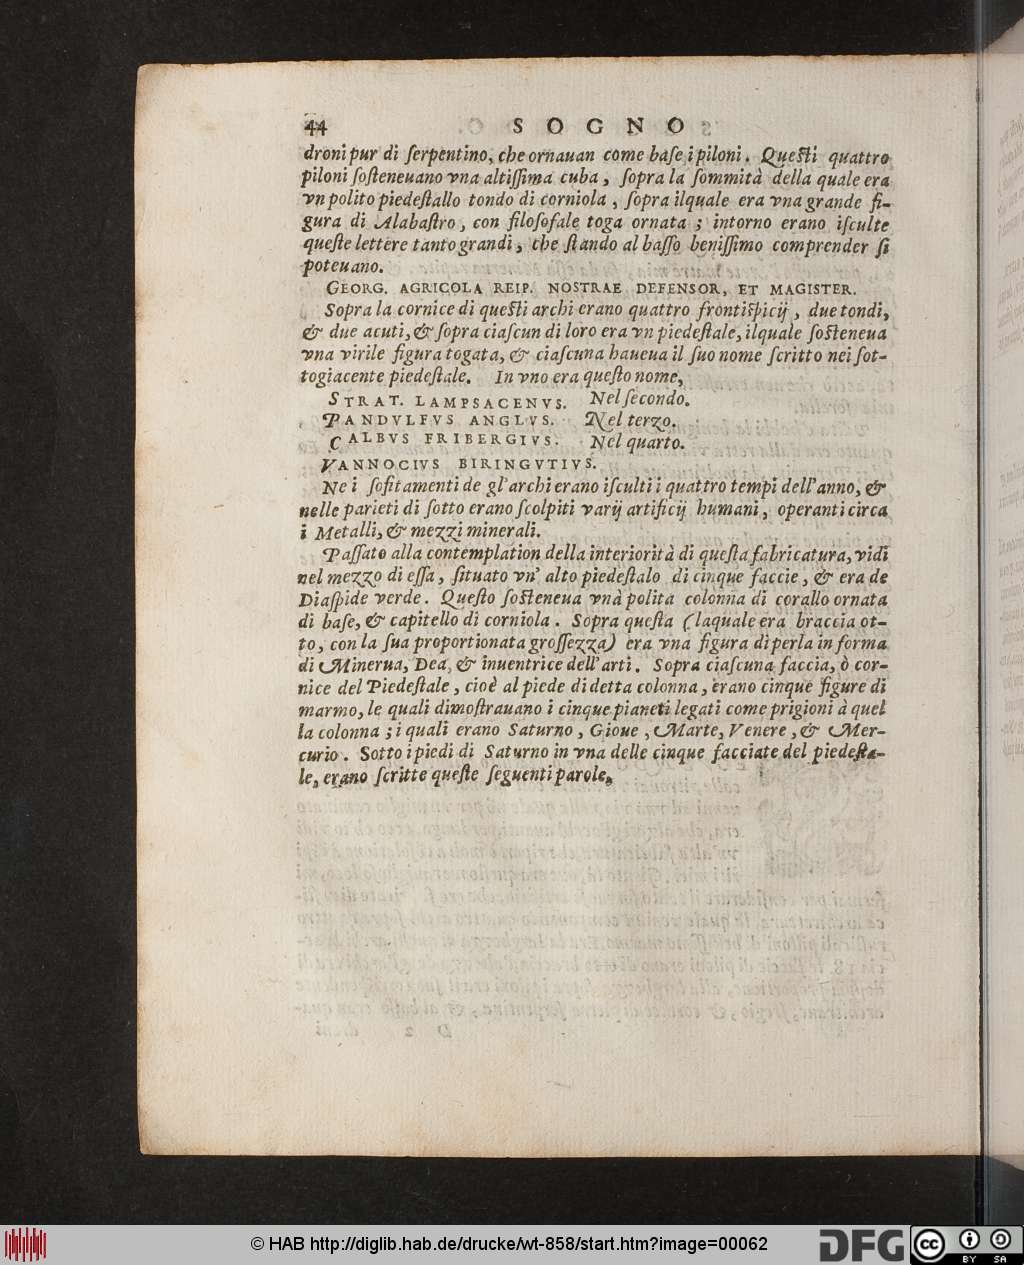 44 SOGNO
droni pur di ſerpentino, che ornauan come baſe i piloni. Queſti quattro
piloni ſoſteneuano vna altiſſima cuba, ſopra la ſommità della quale era
vn polito piedeſtallo tondo di corniola, ſopra ilquale era vna grande fi-
gura di Alabaſtro, con filoſofale toga ornata; intorno erano iſculte
queſte lettere tanto grandi, che ſtando al baſſo beniſſimo comprender ſi
poteuano.
GEORG. AGRICOLA REIP. NOSTRAE DEFENSOR, ET MAGISTER.
Sopra la cornice di queſti archi erano quattro frontiſpicij, due tondi,
& due acuti, & ſopra ciaſcun di loro era vn piedeſtale, ilquale ſoſteneua
vna virile figura togata, & ciaſcuna haueua il ſuo nome ſcritto nei ſot-
togiacente piedeſtale. In vno era queſto nome,
STRAT. LAMPSACENVS. Nel ſecondo.
PANDVLFVS ANGLVS. Nel terzo.
CALBVS FRIBERGIVS. Nel quarto.
VANNOCIVS BIRINGVTIVS.
Ne i ſofitamenti de gl'archi erano iſculti i quattro tempi dell'anno, &
nelle parieti di ſotto erano ſcolpiti varij artificij humani, operanti circa
i Metalli, & mezzi minerali.
Paſſato alla contemplation della interiorità di queſta fabricatura, vidi
nel mezzo di eſſa, ſituato vn' alto piedeſtalo di cinque faccie, & era de
Diaſpide verde. Queſto ſoſteneua vnà polita colonna di corallo ornata
di baſe, & capitello di corniola. Sopra queſta (laquale era braccia ot-
to, con la ſua proportionata groſſezza) era vna figura di perla in forma
di Minerua, Dea, & inuentrice dell'arti. Sopra ciaſcuna faccia, ò cor-
nice del Piedeſtale, cioè al piede di detta colonna, erano cinque figure di
marmo, le quali dimoſtrauano i cinque pianeti legati come prigioni à quel
la colonna; i quali erano Saturno, Gioue, Marte, Venere, & Mer-
curio. Sotto i piedi di Saturno in vna delle cinque facciate del piedeſta-
le, erano ſcritte queſte ſeguenti parole,
© HAB http://diglib.hab.de/drucke/wt-858/start.htm?image=00062
DFG
cc BY SA